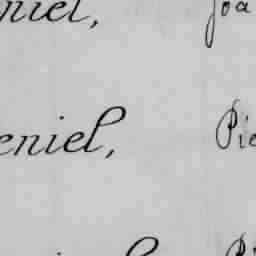 niel, Joa
eniel, Pie